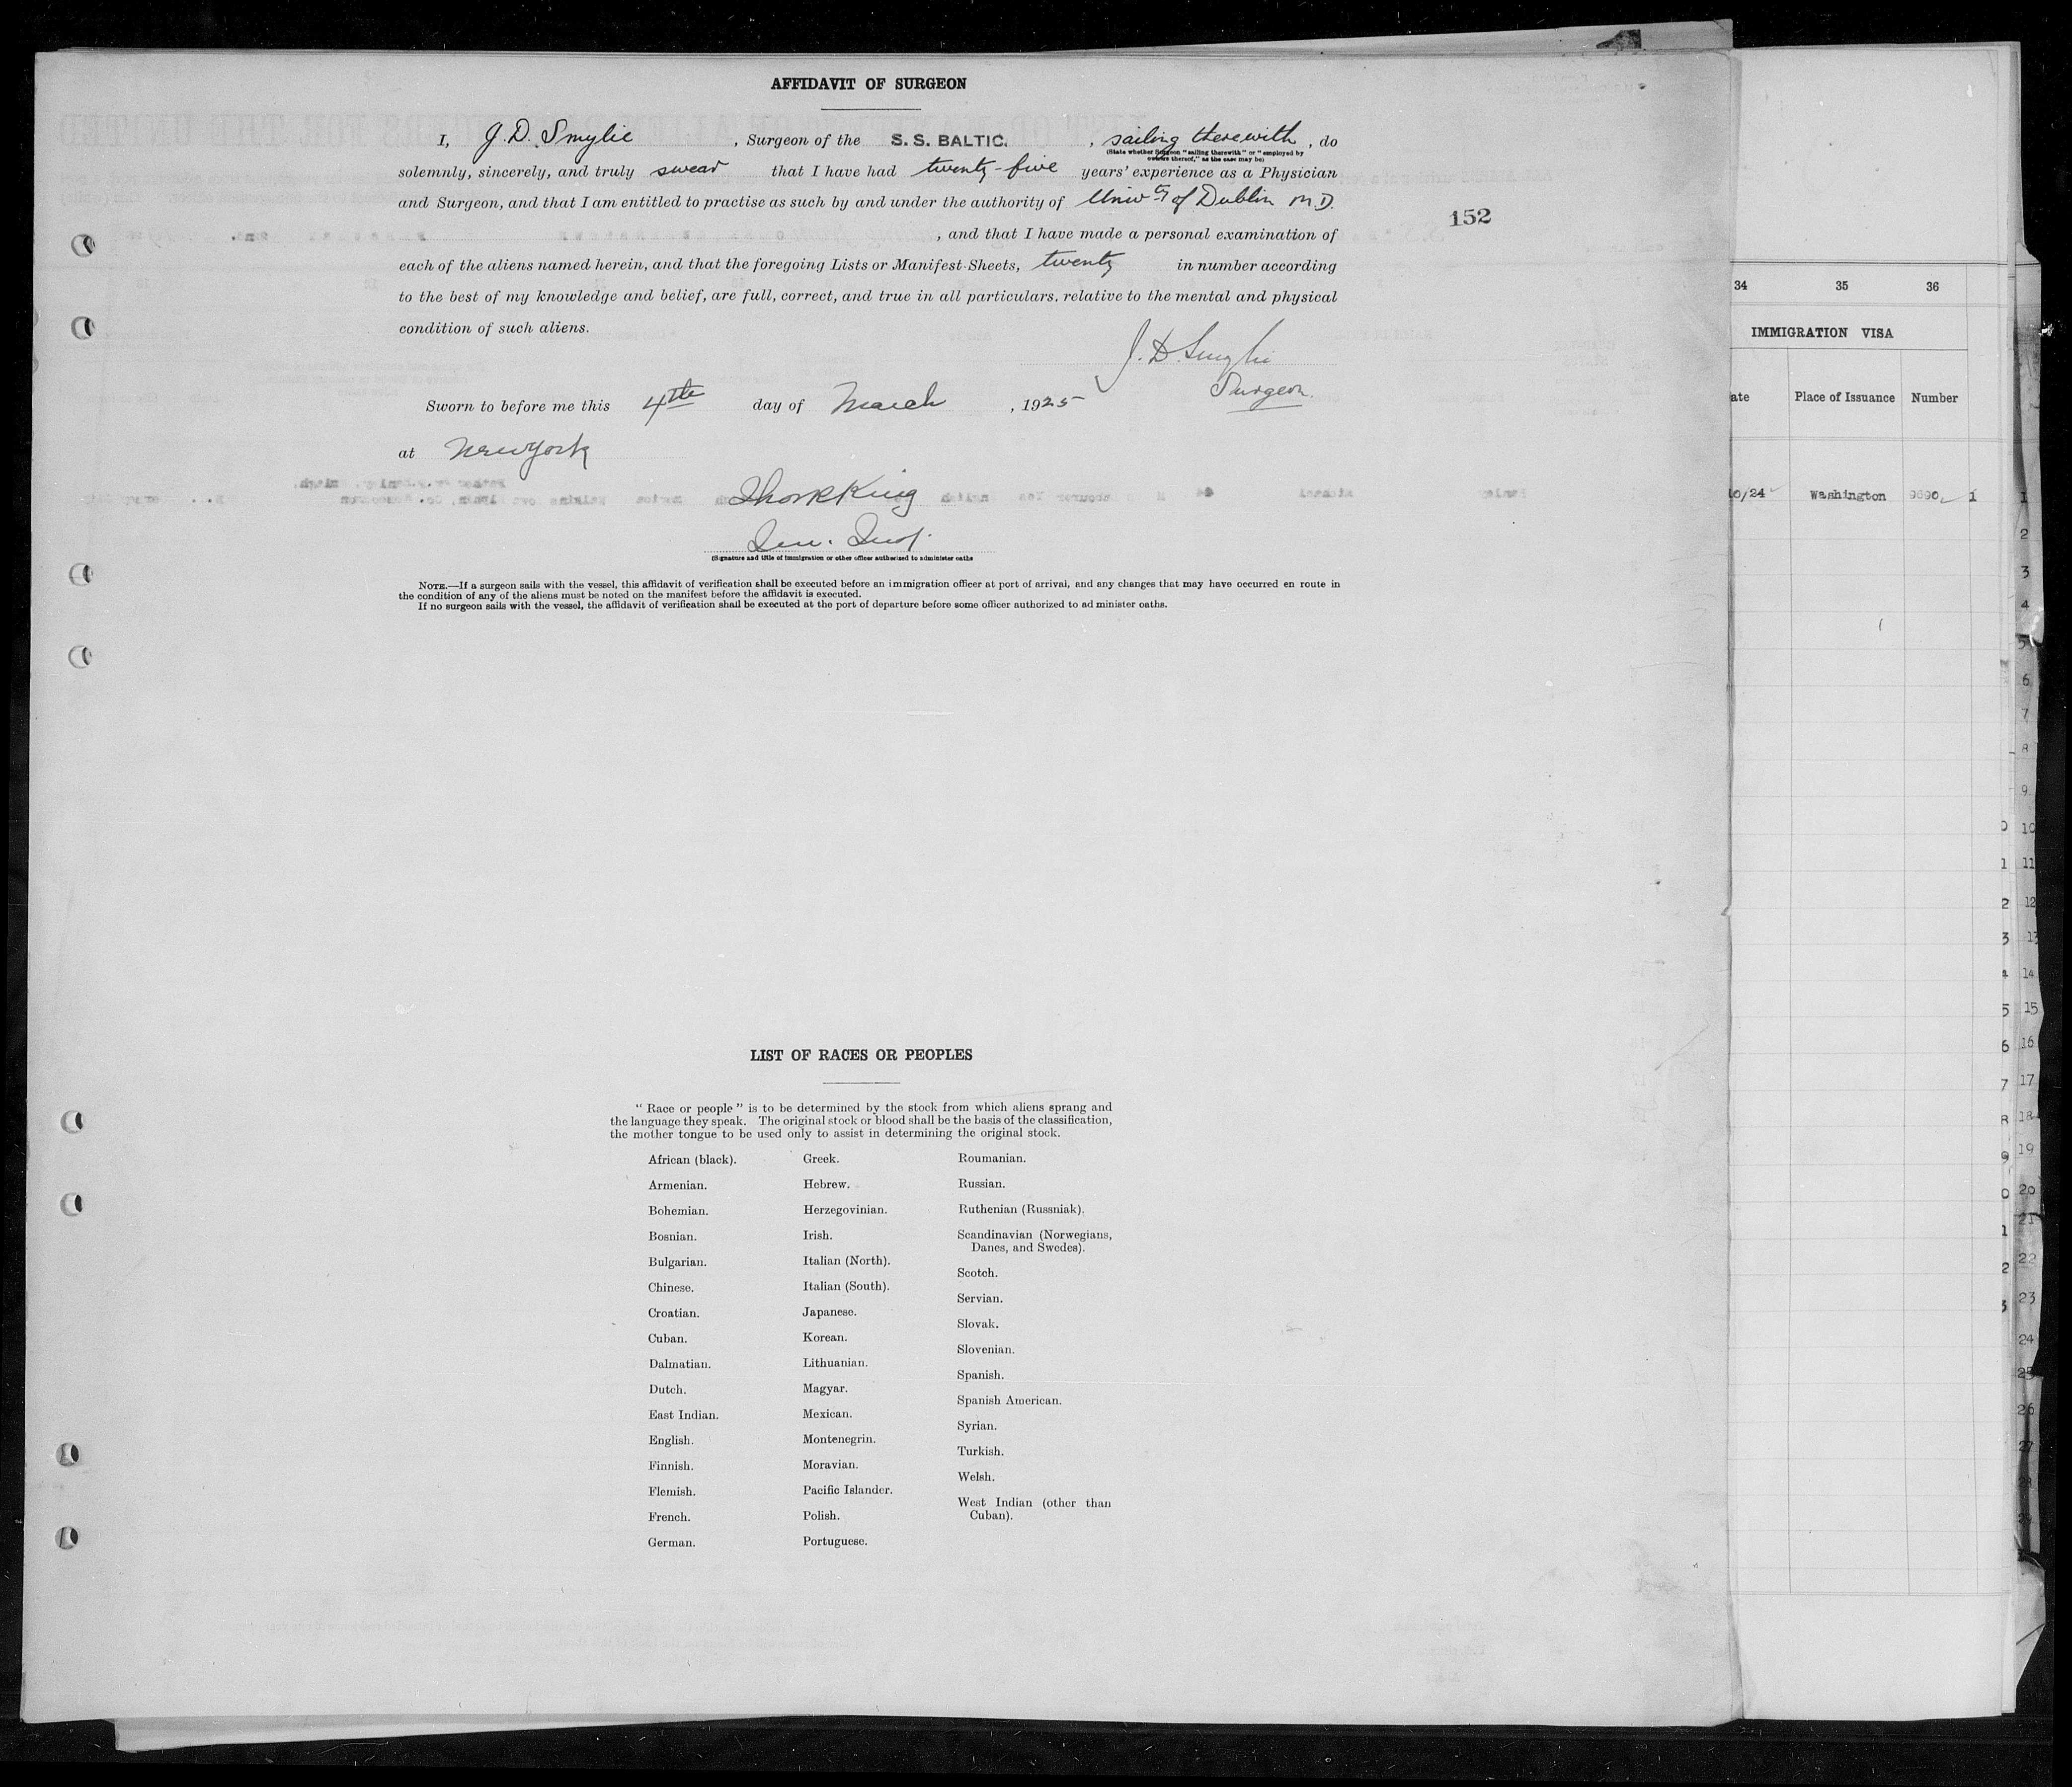 AFFIDAVIT OF SURGEON
I, J. D. Smylie , Surgeon of the S. S. BALTIC. , sailing therewith , do
(State whether Surgeon "sailing therewith" or "employed by
owners thereof," as the case may be)
solemnly, sincerely, and truly swear that I have had twenty-five years' experience as a Physician
and Surgeon, and that I am entitled to practise as such by and under the authority of Univty of Dublin M.D.
152
, and that I have made a personal examination of
each of the aliens named herein, and that the foregoing Lists or Manifest Sheets, twenty in number according
to the best of my knowledge and belief, are full, correct, and true in all particulars, relative to the mental and physical
condition of such aliens.
J. D. Smylie
Surgeon.
Sworn to before me this 4th day of March , 1925
at New York
King
(Signature and title of immigration or other officer authorized to administer oaths
NOTE.—If a surgeon sails with the vessel, this affidavit of verification shall be executed before an immigration officer at port of arrival, and any changes that may have occurred en route in
the condition of any of the aliens must be noted on the manifest before the affidavit is executed.
If no surgeon sails with the vessel, the affidavit of verification shall be executed at the port of departure before some officer authorized to ad minister oaths.
LIST OF RACES OR PEOPLES
"Race or people" is to be determined by the stock from which aliens sprang and
the language they speak. The original stock or blood shall be the basis of the classification,
the mother tongue to be used only to assist in determining the original stock.
African (black).
Armenian.
Bohemian.
Bosnian.
Bulgarian.
Chinese.
Croatian.
Cuban.
Dalmatian.
Dutch.
East Indian.
English.
Finnish.
Flemish.
French.
German.
Greek.
Hebrew.
Herzegovinian.
Irish.
Italian (North).
Italian (South).
Japanese.
Korean.
Lithuanian.
Magyar.
Mexican.
Montenegrin.
Moravian.
Pacific Islander.
Polish.
Portuguese.
Roumanian.
Russian.
Ruthenian (Russniak).
Scandinavian (Norwegians,
Danes, and Swedes).
Scotch.
Servian.
Slovak.
Slovenian.
Spanish.
Spanish American.
Syrian.
Turkish.
Welsh.
West Indian (other than
Cuban).
34 35 36
IMMIGRATION VISA
ate Place of Issuance Number
10/24 Washington 9690 1
1
2
3
4
5
6
7
8
9
10
11
12
13
14
15
16
17
18
19
20
21
22
23
24
25
26
27
28
29